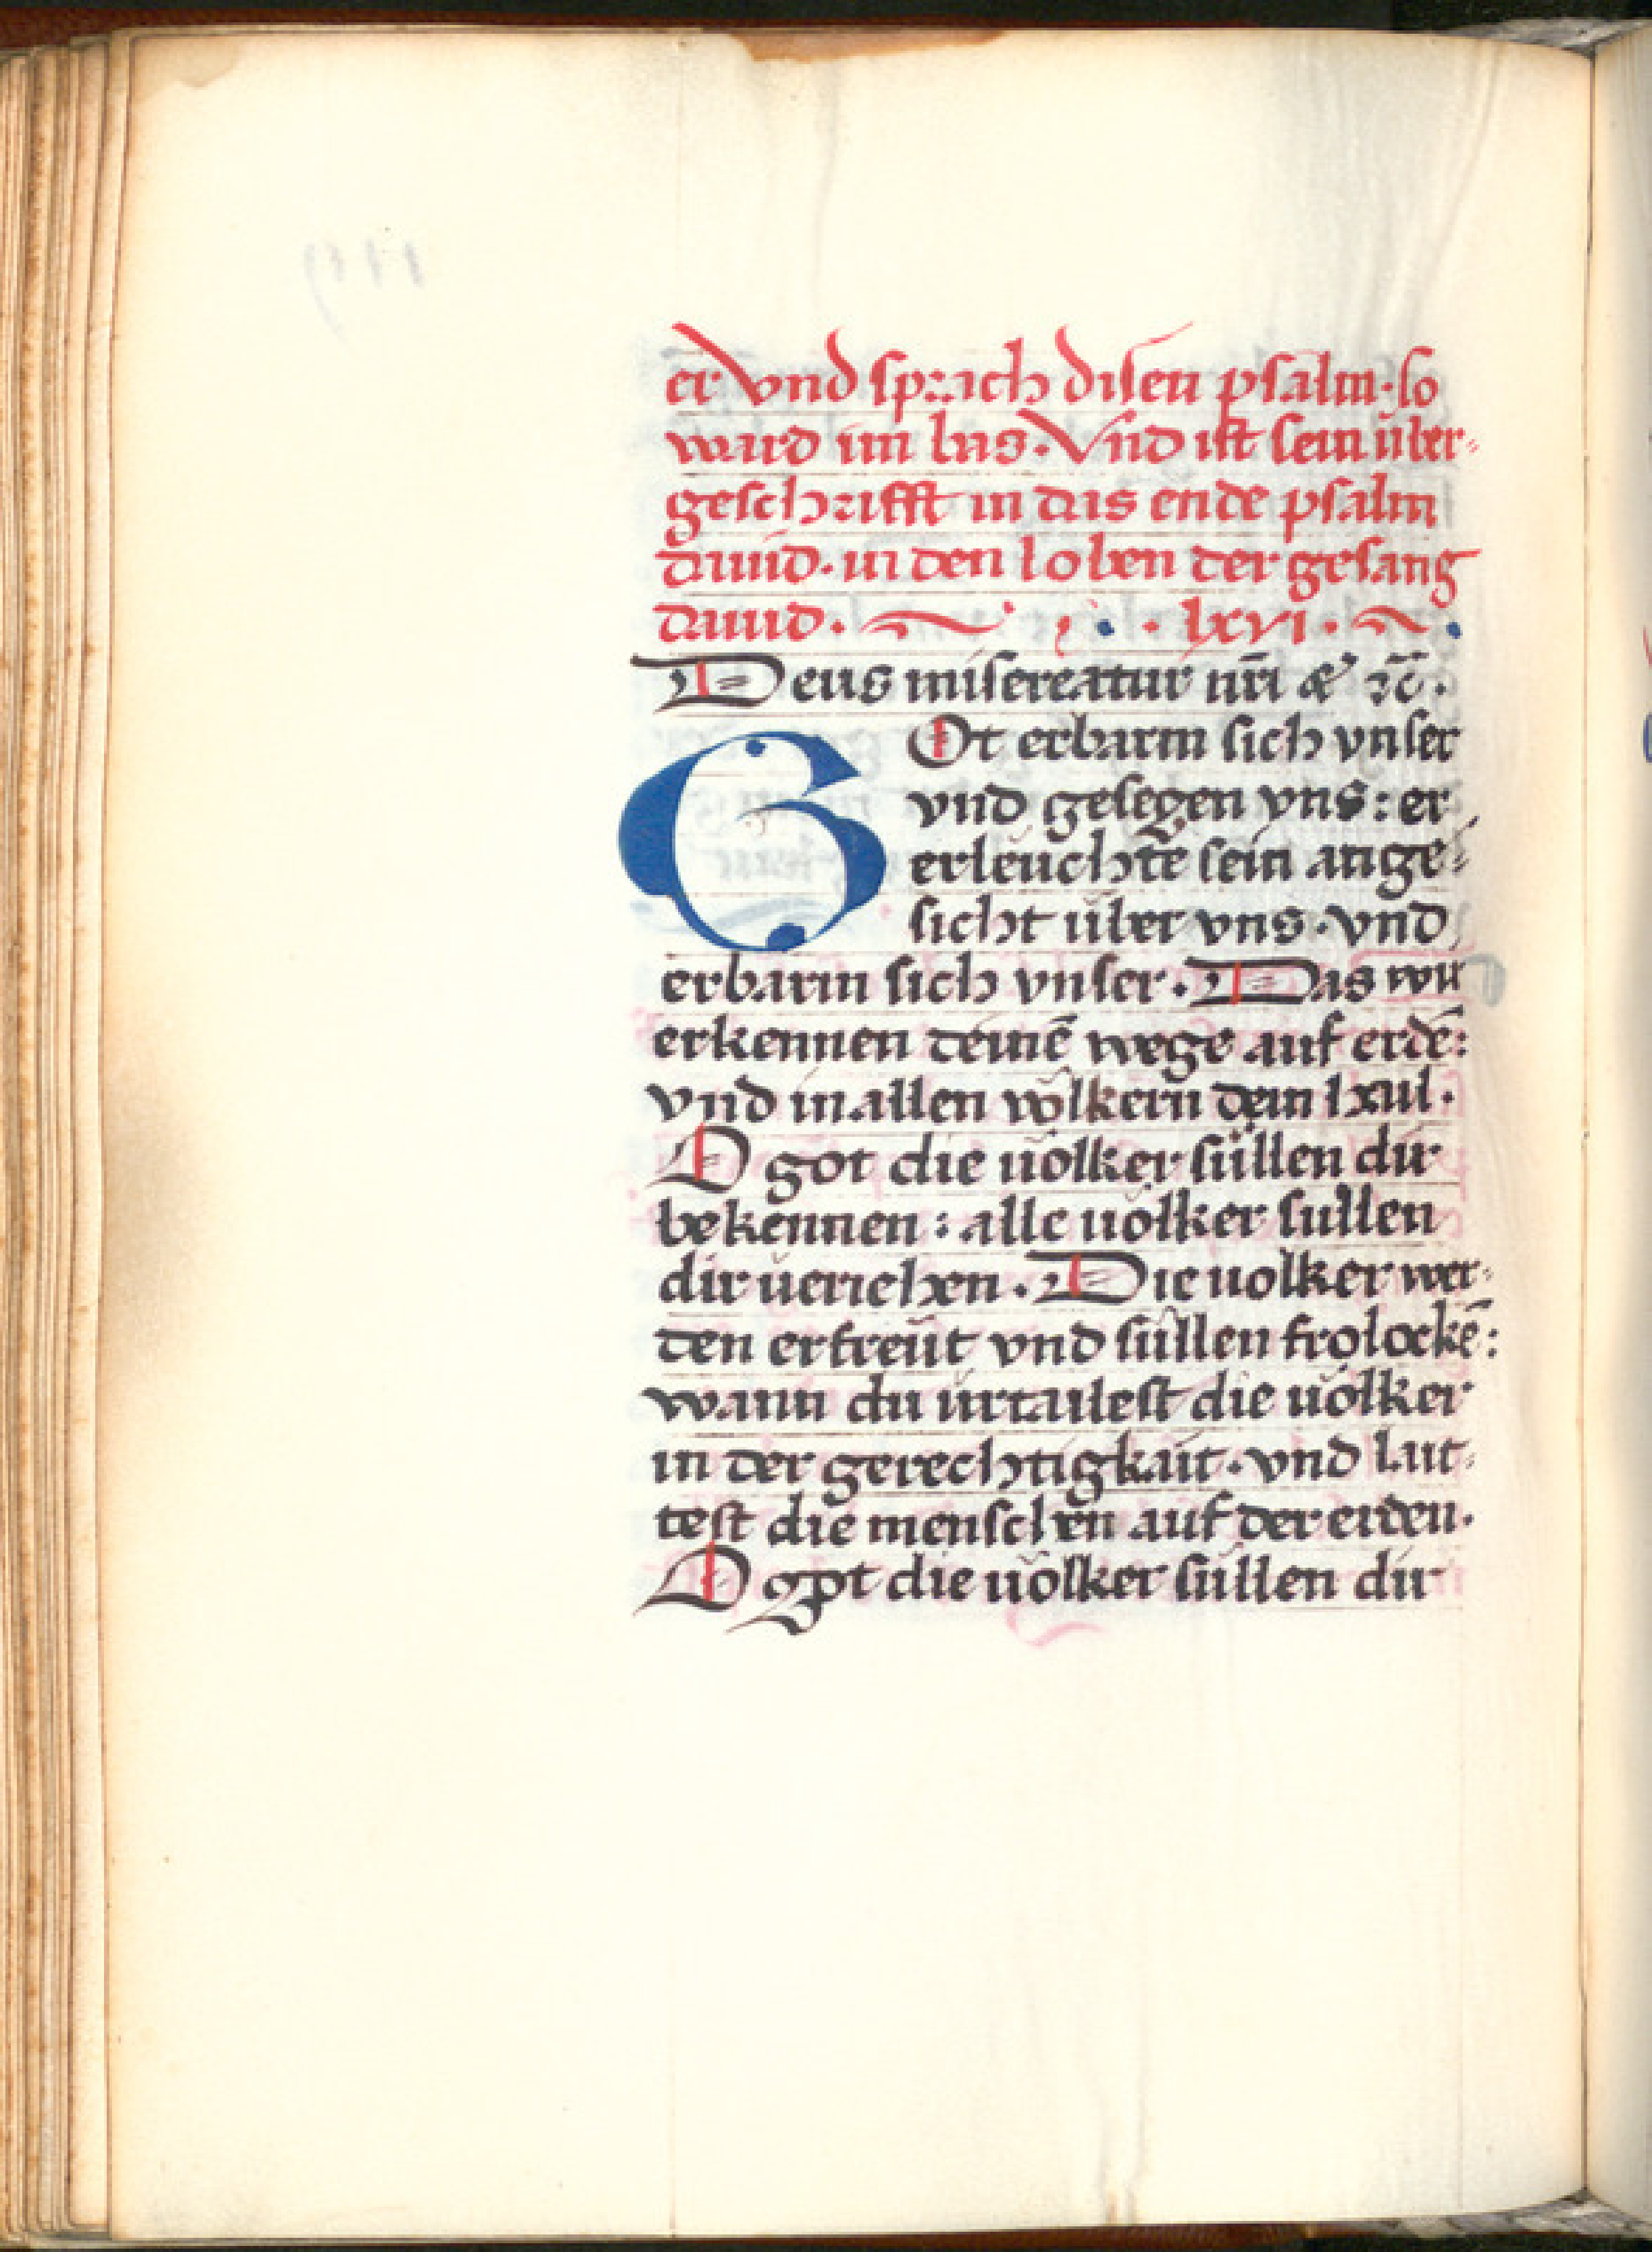 er vnd sprach disen psalm· so
ward im bas· Vnd ist sein über⸗
geschrifft in das ende psalm
dauid· in den loben der gesang
dauid· lxvi·
Deus misereatur nr̄i & ꝛc̄·
GOt erbarm sich vnser
vnd gesegen vns: er
erleüchte sein ange⸗
sicht über vns· vnd
erbarm sich vnser· Das wir
erkennen deinē wege auf erdē:
vnd in allen völkern dein hail·
O got die uölker süllen dir
bekennen: alle uölker süllen
dir ueriehen· Die uölker wer⸗
den erfreüt vnd süllen frolockē:
wann du urtailest die uölker
in der gerechtigkait· vnd lait⸗
test die menschen auf der erden·
O got die uölker süllen dir